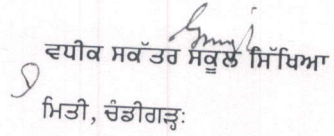 ਵਧੀਕ ਸਕੱਤਰ ਸਕੂਲ ਸਿੱਖਿਆ
ਮਿਤੀ, ਚੰਡੀਗੜ੍ਹ: